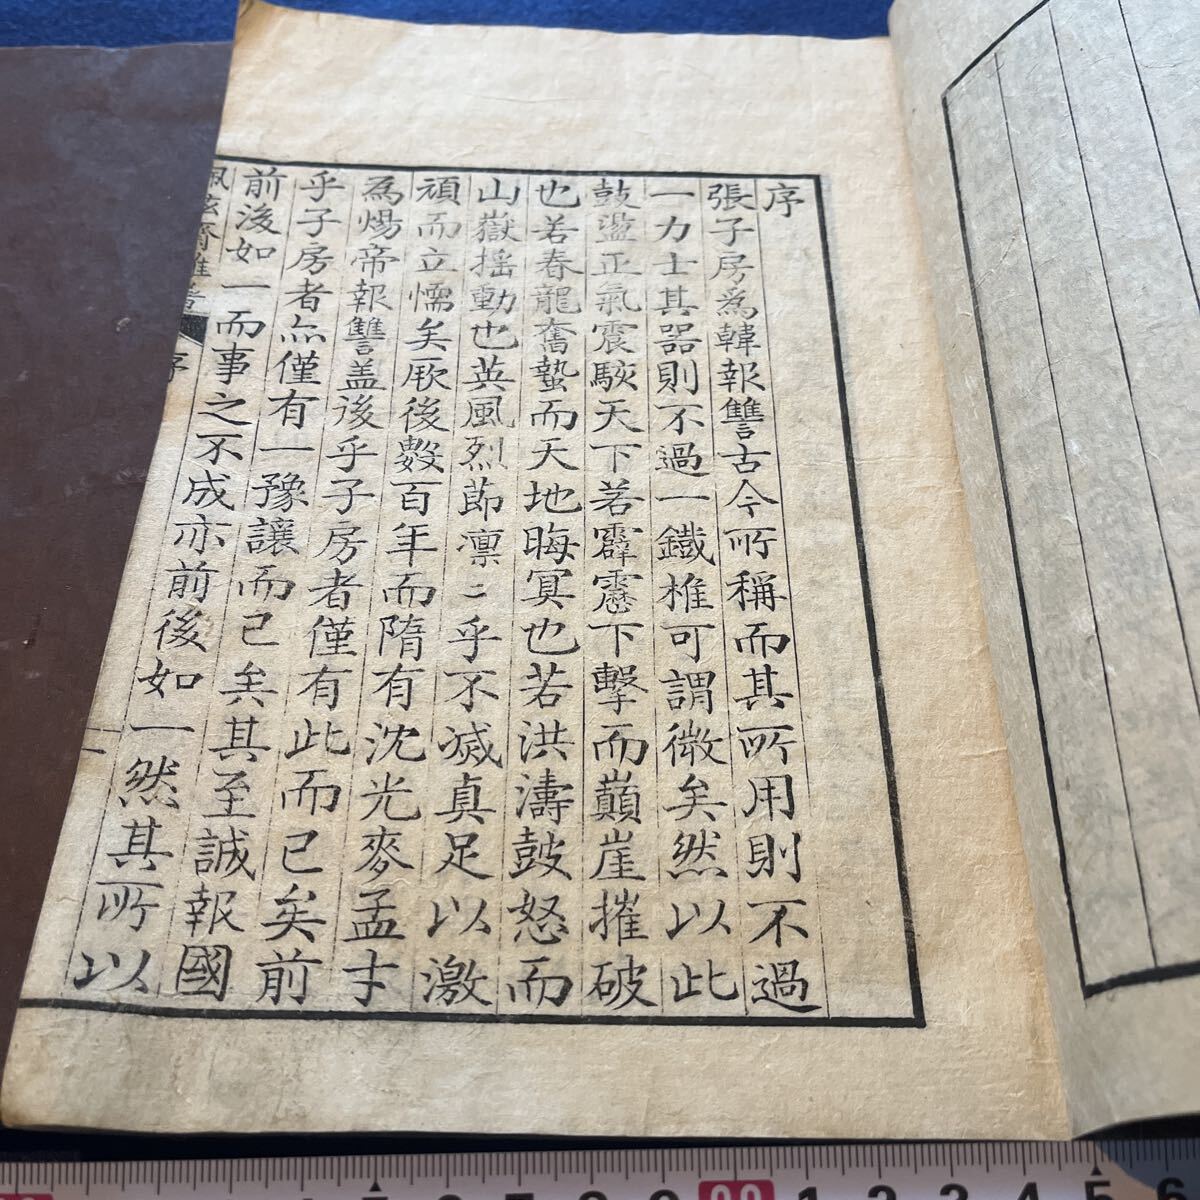 序
張子房為韓報讐古今所稱而其所用則不過
一力士其器則不過一鐵椎可謂微矣然以此
鼓盪正氣震駭天下若霹靂下擊而巔崖摧破
也若春龍奮蟄而天地晦冥也若洪濤鼓怒而
山嶽摇動也英風烈節凛〻乎不滅真足以激
頑而立懦矣厥後數百年而隋有沈光麥孟才
為煬帝報讐盖後乎子房者僅有此而已矣前
乎子房者亦僅有一豫讓而已矣其至誠報國
前後如一而事之不成亦前後如一然其所以
佩弦齋雜著
序
一
5 6 7 8 9 00 1 2 3 4 5 6